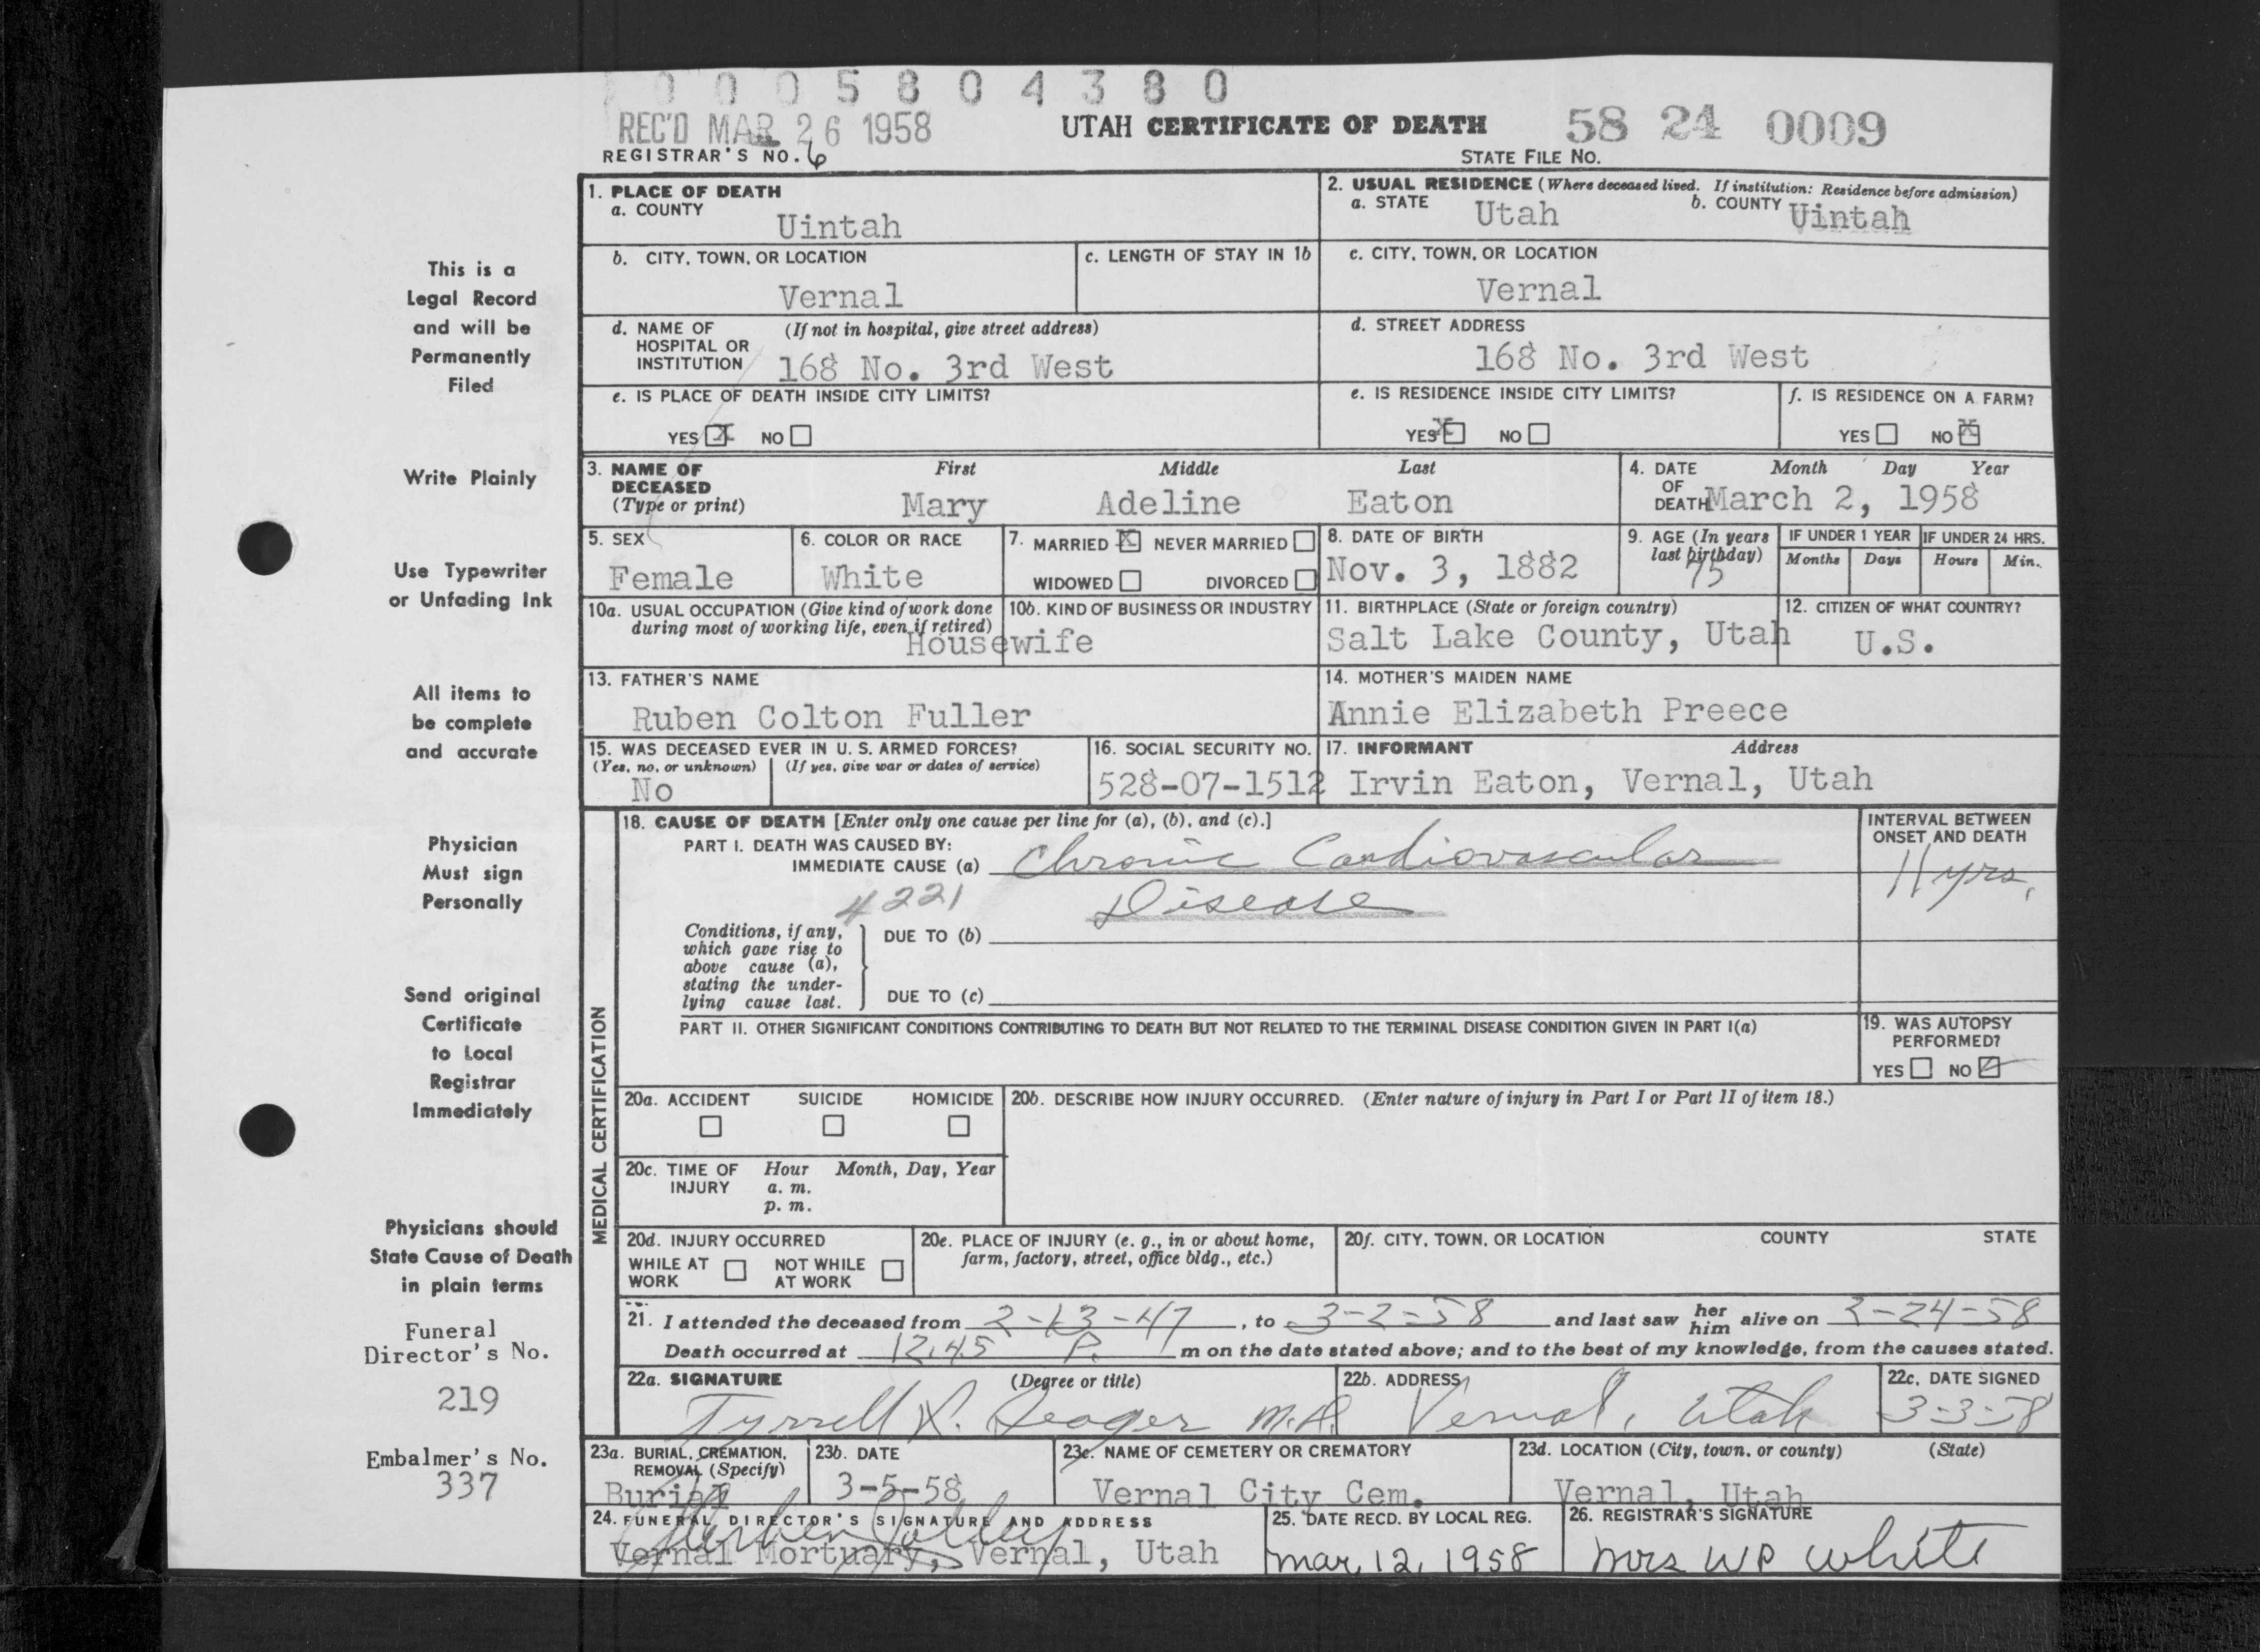 0005804380
REC'D MAR 26 1958
UTAH CERTIFICATE OF DEATH
58 24 0009
REGISTRAR'S NO. 6
STATE FILE NO.
1. PLACE OF DEATH
a. COUNTY
Uintah
2. USUAL RESIDENCE (Where deceased lived. If institution: Residence before admission)
a. STATE Utah b. COUNTY Uintah
b. CITY, TOWN, OR LOCATION
Vernal
c. LENGTH OF STAY IN 1b
c. CITY, TOWN, OR LOCATION
Vernal
d. NAME OF HOSPITAL OR INSTITUTION (If not in hospital, give street address)
168 No. 3rd West
d. STREET ADDRESS
168 No. 3rd West
e. IS PLACE OF DEATH INSIDE CITY LIMITS?
YES X NO
e. IS RESIDENCE INSIDE CITY LIMITS?
YES X NO
f. IS RESIDENCE ON A FARM?
YES NO X
3. NAME OF DECEASED (Type or print)
First Middle Last
Mary Adeline Eaton
4. DATE OF DEATH Month Day Year
March 2, 1958
5. SEX
Female
6. COLOR OR RACE
White
7. MARRIED X NEVER MARRIED
WIDOWED DIVORCED
8. DATE OF BIRTH
Nov. 3, 1882
9. AGE (In years last birthday)
75
IF UNDER 1 YEAR
Months Days
IF UNDER 24 HRS.
Hours Min.
10a. USUAL OCCUPATION (Give kind of work done during most of working life, even if retired)
Housewife
10b. KIND OF BUSINESS OR INDUSTRY
11. BIRTHPLACE (State or foreign country)
Salt Lake County, Utah
12. CITIZEN OF WHAT COUNTRY?
U.S.
13. FATHER'S NAME
Ruben Colton Fuller
14. MOTHER'S MAIDEN NAME
Annie Elizabeth Preece
15. WAS DECEASED EVER IN U. S. ARMED FORCES?
(Yes, no, or unknown) (If yes, give war or dates of service)
No
16. SOCIAL SECURITY NO.
528-07-1512
17. INFORMANT Address
Irvin Eaton, Vernal, Utah
MEDICAL CERTIFICATION
18. CAUSE OF DEATH [Enter only one cause per line for (a), (b), and (c).]
PART I. DEATH WAS CAUSED BY:
IMMEDIATE CAUSE (a) Chronic Cardiovascular
4221 Disease
INTERVAL BETWEEN ONSET AND DEATH
11 yrs.
Conditions, if any, which gave rise to above cause (a), stating the underlying cause last.
DUE TO (b)
DUE TO (c)
PART II. OTHER SIGNIFICANT CONDITIONS CONTRIBUTING TO DEATH BUT NOT RELATED TO THE TERMINAL DISEASE CONDITION GIVEN IN PART I(a)
19. WAS AUTOPSY PERFORMED?
YES NO
20a. ACCIDENT SUICIDE HOMICIDE
20b. DESCRIBE HOW INJURY OCCURRED. (Enter nature of injury in Part I or Part II of item 18.)
20c. TIME OF INJURY Hour Month, Day, Year
a. m.
p. m.
20d. INJURY OCCURRED
WHILE AT WORK NOT WHILE AT WORK
20e. PLACE OF INJURY (e. g., in or about home, farm, factory, street, office bldg., etc.)
20f. CITY, TOWN, OR LOCATION COUNTY STATE
21. I attended the deceased from 2-13-47, to 3-2-58 and last saw her him alive on 2-24-58
Death occurred at 12:45 P. m on the date stated above; and to the best of my knowledge, from the causes stated.
22a. SIGNATURE (Degree or title)
Tyrrell R. Seager M.D.
22b. ADDRESS
Vernal, Utah
22c. DATE SIGNED
3-3-58
23a. BURIAL, CREMATION, REMOVAL (Specify)
Burial
23b. DATE
3-5-58
23c. NAME OF CEMETERY OR CREMATORY
Vernal City Cem.
23d. LOCATION (City, town, or county) (State)
Vernal, Utah
24. FUNERAL DIRECTOR'S SIGNATURE AND ADDRESS
Vernal Mortuary, Vernal, Utah
25. DATE RECD. BY LOCAL REG.
Mar, 12, 1958
26. REGISTRAR'S SIGNATURE
Mrs WP White
This is a
Legal Record
and will be
Permanently
Filed
Write Plainly
Use Typewriter
or Unfading Ink
All items to
be complete
and accurate
Physician
Must sign
Personally
Send original
Certificate
to Local
Registrar
Immediately
Physicians should
State Cause of Death
in plain terms
Funeral
Director's No.
219
Embalmer's No.
337